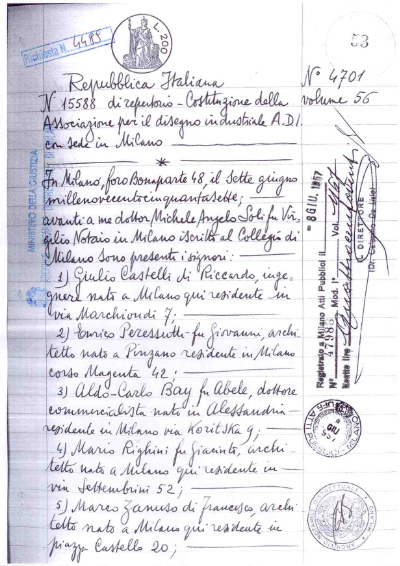 Richiesta N. 4485
L. 200
53
Repubblica Italiana
N° 4701
N. 15588 di repertorio - Costituzione della
volume 56
Associazione per il disegno industriale A.D.I.
con sede in Milano
*
In Milano, foro Bonaparte 48, il sette giugno
millenovecentocinquantasette;
avanti a me dottor Michele Angelo Soli fu Vir-
gilio Notaio in Milano iscritto al Collegio di
Milano sono presenti i signori:
1) Giulio Castelli di Riccardo, inge-
gnere nato a Milano qui residente in
via Marchiondi 7.
2) Enrico Peressutti fu Giovanni, archi
tetto nato a Pinzano residente in Milano
corso Magenta 42:
3) Aldo-Carlo Bay fu Abele, dottore
commercialista nato in Alessandria
residente in Milano via Koritska 9;
4) Mario Righini fu Giacinto, archi
tetto nato a Milano qui residente in
via Settembrini 52;
5) Marco Zanuso di Francesco, archi
tetto nato a Milano qui residente in
piazza Castello 20;
MINISTERO DELLA GIUSTIZIA
Registrato a Milano Atti Pubblici il 8 GIU. 1957
N° 47986 Mod. I° Vol.
Esatte lire
IL DIRETTORE